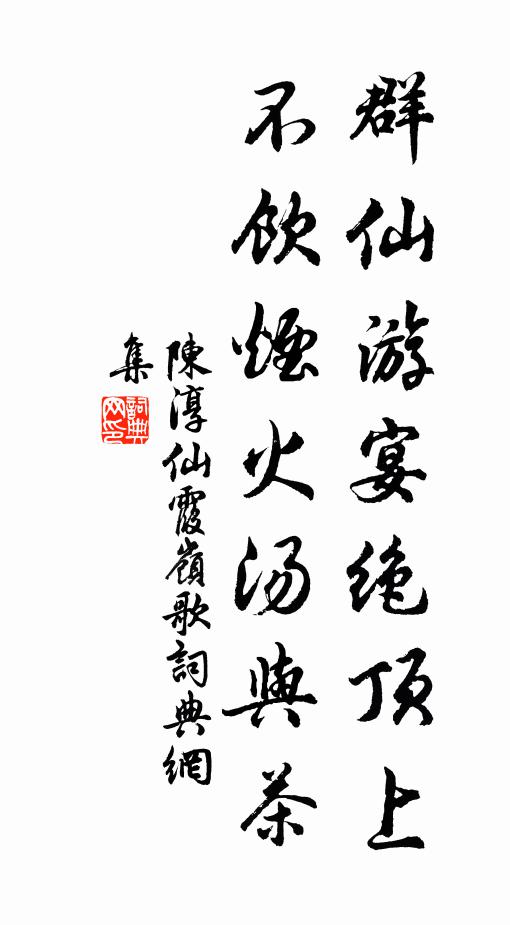 群仙游宴绝顶上
不飲煙火汤與茶
陳淳仙霞嶺歌詞典網
集
詞典网印